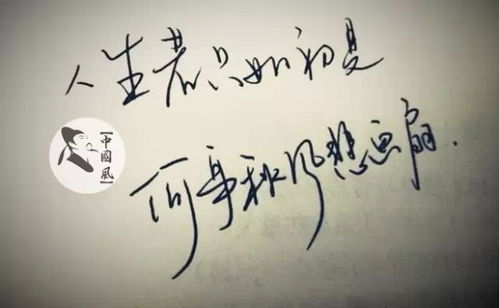 人生若只如初見
何事秋风悲画扇.
中國風